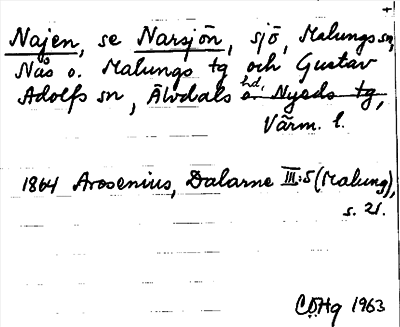 Najen, se Narsjön, sjö, Malungs sn,
Näs o. Malungs tg och Gustav
Adolfs sn, Älvdals hd, o Nyeds tg,
Värm. l.
1864 Arosenius, Dalarne III:5 (Malung),
s. 21.
1963